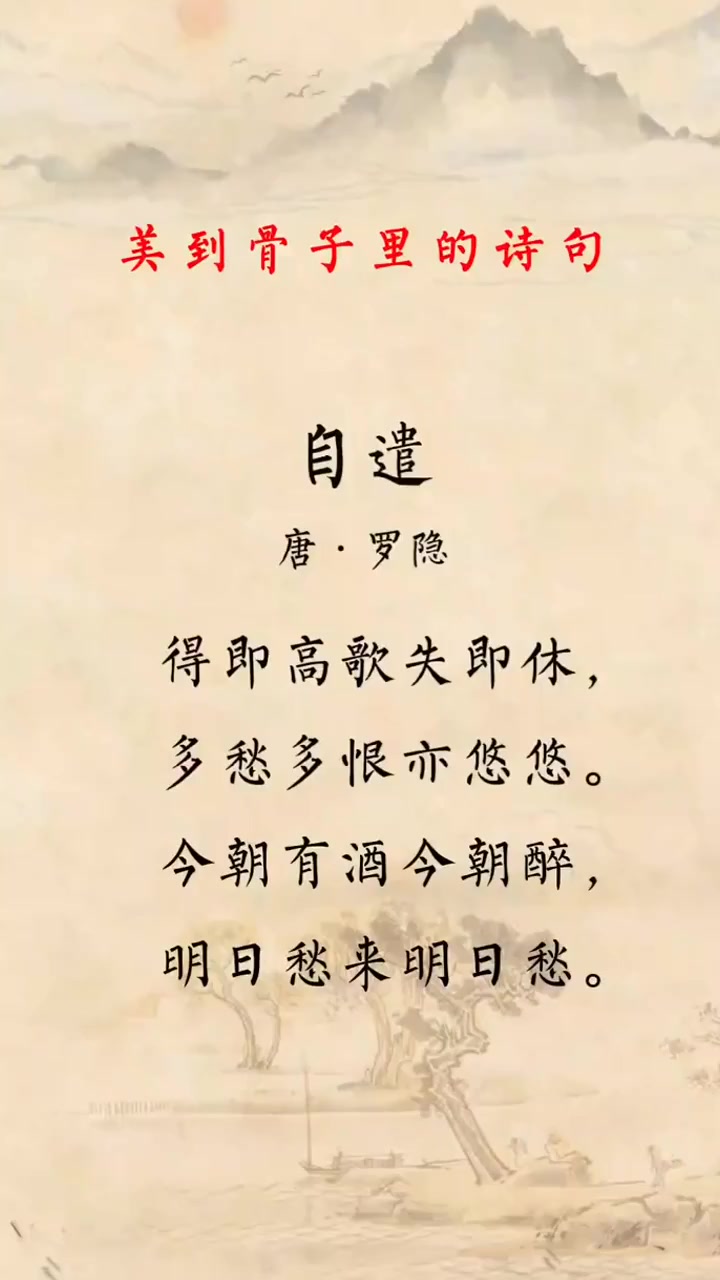 美到骨子里的诗句
自遣
唐·罗隐
得即高歌失即休，
多愁多恨亦悠悠。
今朝有酒今朝醉，
明日愁来明日愁。